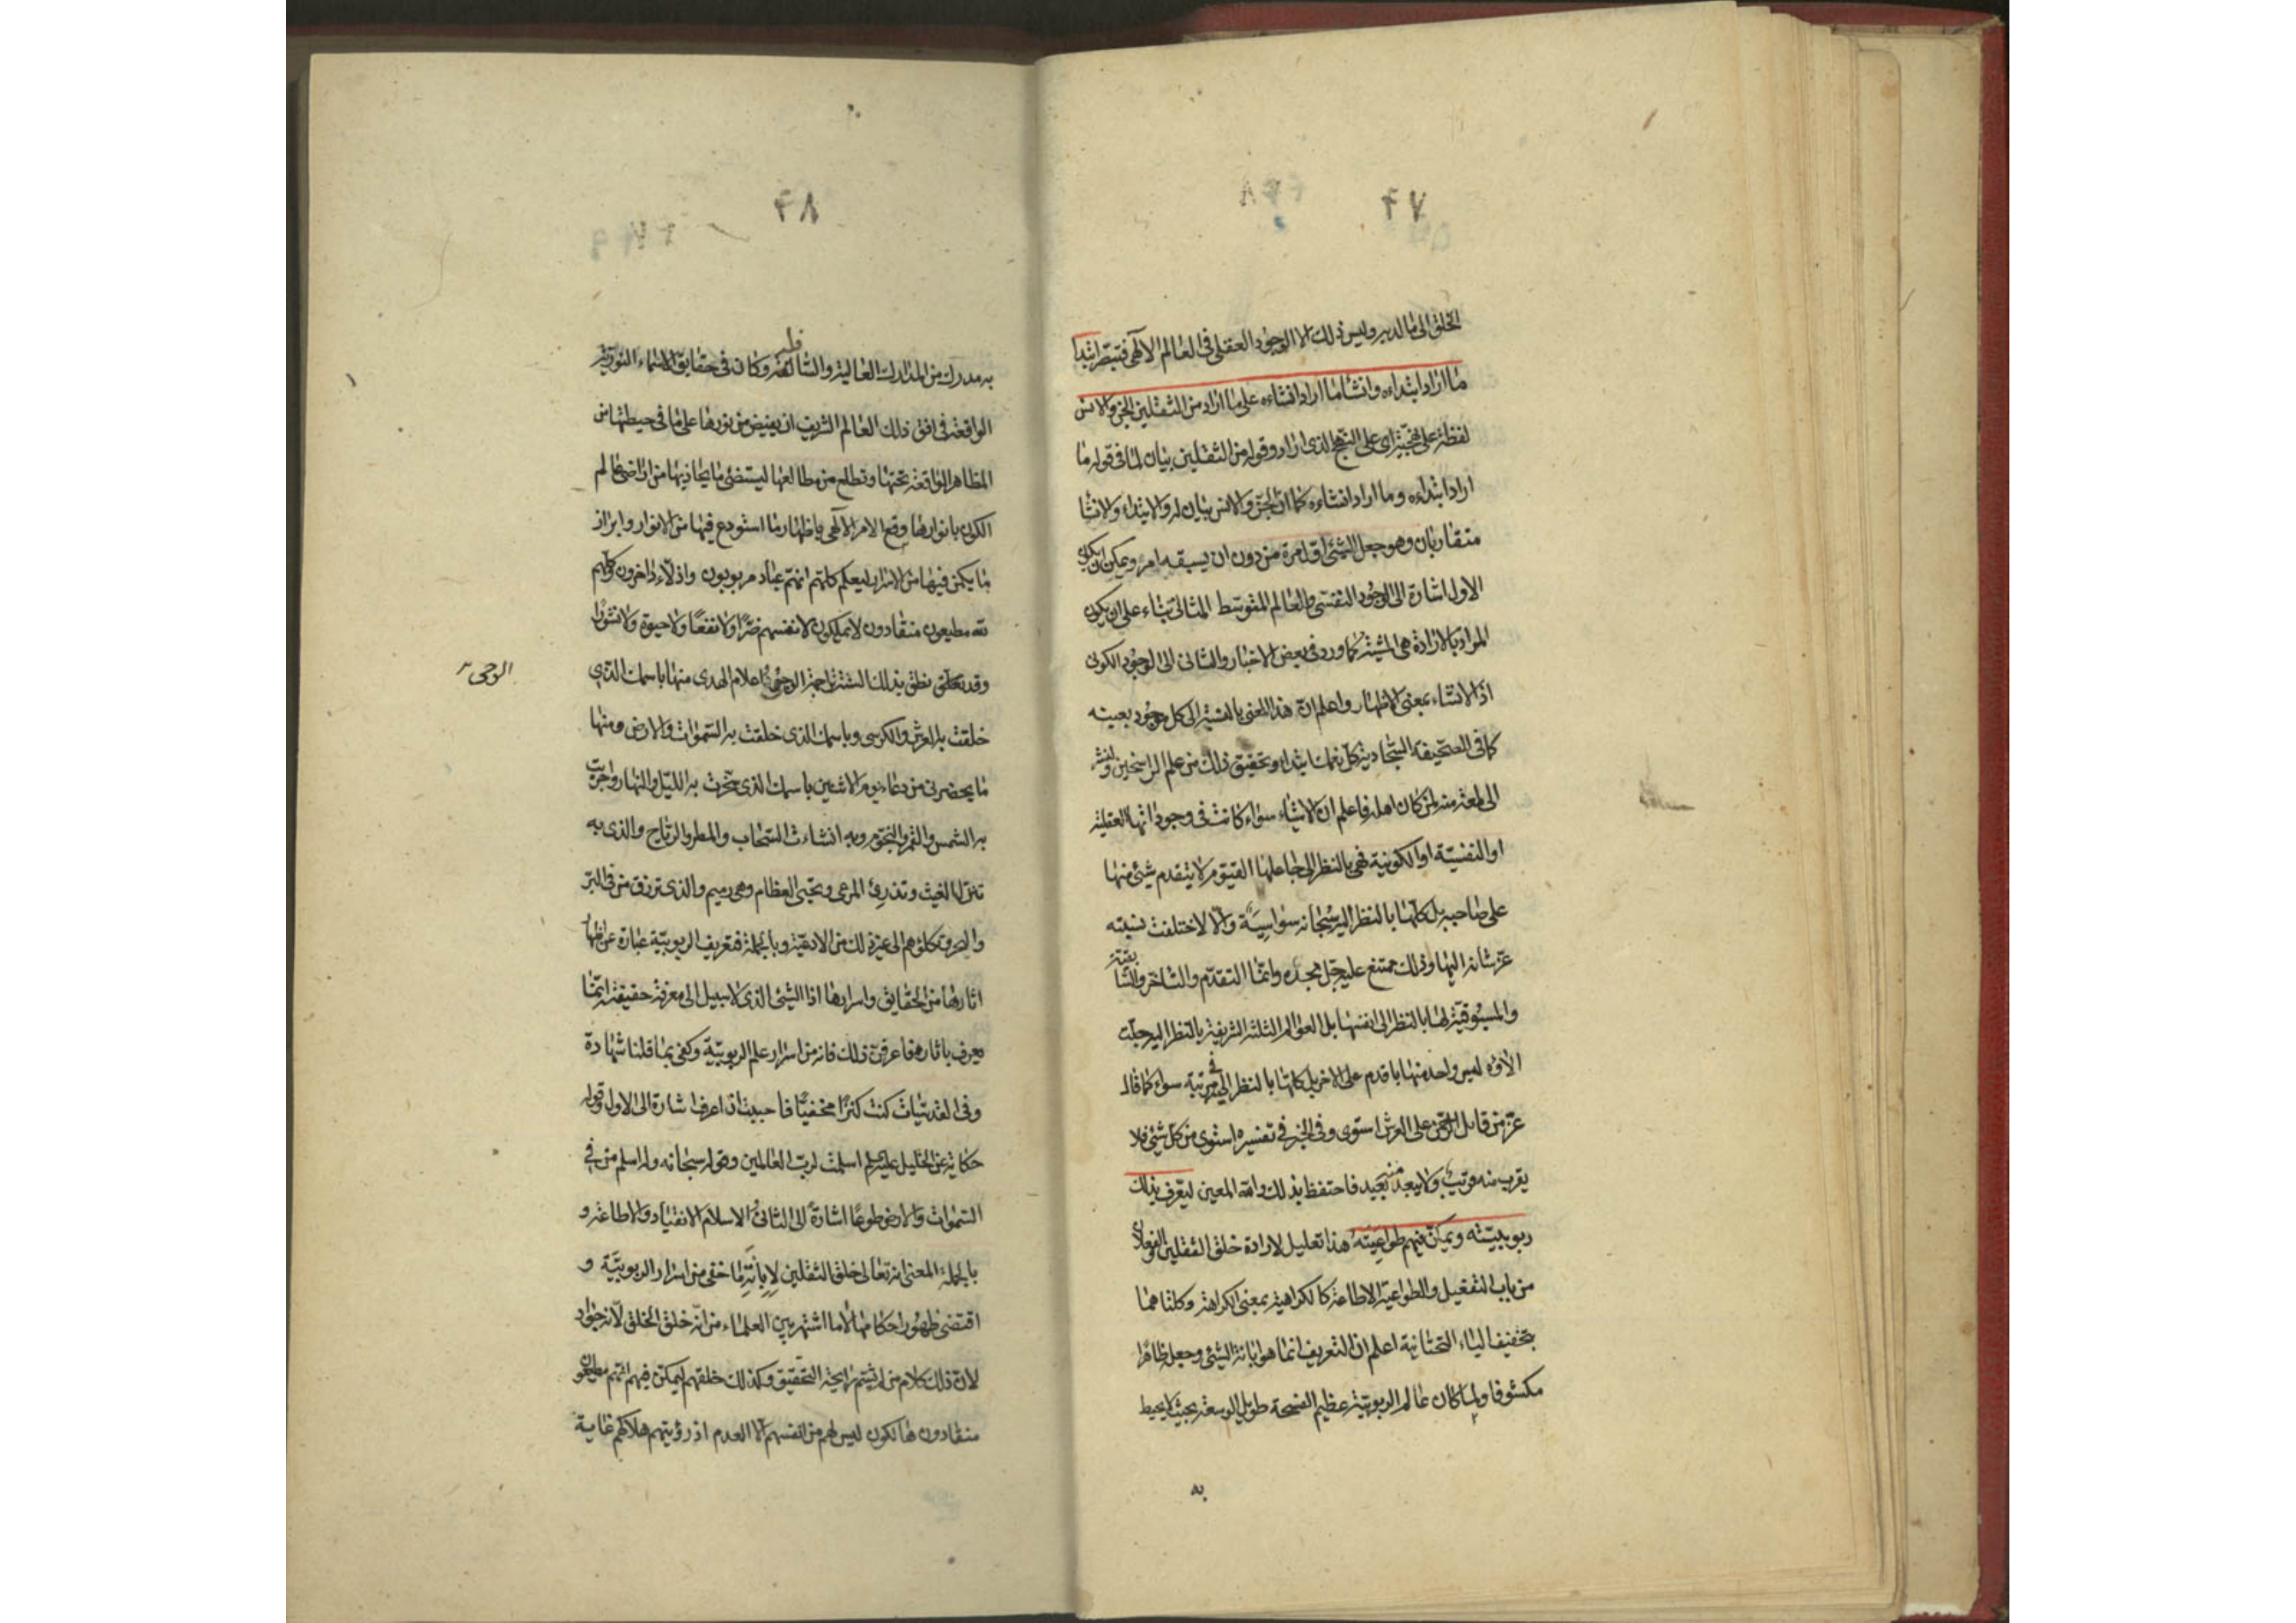 ۴۷
الخلق الى ما الدبر وليس ذلك الا الوجود العقلى فى العالم الالٓهى فتبصّر ابتدا
ما اراد ابتداءه وانشا ما اراد انشاءه على ما اراد من الثقلين الجن والانس
لفظة على نهجيّة اى على النهج الذى اراد وقوله من الثقلين بيان لما فى قوله ما
اراد ابتداءه وما اراد انشاءه كما انّ الجنّ والانس بيان له والابتداء والانشا
متقاربان وهو جعل الشئ اوّل مرة من دون ان يسبقه امر ويمكن ان يكون
الاول اشارة الى الوجود النفسى والعالم المتوسط المثالى بناء على ان يكون
المراد بالارادة هى المشيّة كما ورد فى بعض الاخبار والثانى الى الوجود الكونى
اذ الانشاء بمعنى الاظهار واعلم انّ هذا المعنى بالنسبة الى كل موجود بعينه
كما فى الصحيفة السجادية كلّ نعمك ابتداء وتحقيق ذلك من علم الراسخين ولنشر
الى لمعة منه لمن كان اهله فاعلم ان الاشياء سواء كانت فى وجوداتها العقلية
او النفسيّة او الكونية فهى بالنظر الى جاعلها القيّوم لا يتقدم شئ منها
على صاحبه بل كلّها بالنظر اليه سبحانه سواسيَة والّا لاختلفت نسبته
عزّ شانه اليها وذلك ممتنع عليه جلّ مجده وانّما التقدّم والتاخر والسّابقيّة
والمسبوقيّة لها بالنظر الى انفسها بل العوالم الثلثة الشريفة بالنظر اليه جلّت
الاؤه ليس واحد منها باقدم على الاخر بل كلها بالنظر اليه فى مرتبة سواء كما قال
عزّ من قائل الرحمن على العرش استوى وفى الخبر فى تفسيره استوى من كلّ شئ فلا
يقرب منه قريب ولا يبعد منه بعيد فاحتفظ بذلك والله المعين ليعرّف بذلك
ربوبيّته ويمكّن فيهم طواعيته هذا تعليل لارادة خلق الثقلين والفعلان
من باب التفعيل والطواعية الاطاعة كالكراهية بمعنى الكراهة وكلتاهما
بتخفيف الياء التحتانية اعلم ان التعريف انما هو ابانة الشئ وجعله ظاهرا
مكشوفا ولما كان عالم الربوبيّة عظيم الفسحة طويل الوسعة بحيث لا يحيط
به
۴۸
به مدرك من المدارك العالية والسّافلة وكان فى حقايق الاسماء النوريّة
الواقعة فى افق ذلك العالم الشريف ان يفيض من نورها على ما فى حيطتها من
المظاهر الواقعة تحتها وتطلع من مطالعها ليستضئ ما يحاذيها من اراضى عالم
الكون بانوارها وقع الامر الالٓهى باظهار ما استودع فيها من الانوار وابراز
ما يكمن فيها من الاسرار ليعلم كلهم انهم عباد مربوبون واذلّاء داخرون وكلهم
لله مطيعون منقادون لا يملكون لانفسهم ضرّا ولا نفعًا ولا حيوة ولا نشورًا
وقد نطق بذلك السنة تراجمة الوحى اعلام الهدى منها باسمك الذى
خلقت به العرش والكرسى وباسمك الذى خلقت به السّموات والارض ومنها
ما يحضرنى من دعاء يوم الاثنين باسمك الذى سخّرت به الليل والنهار واجريت
به الشمس والقمر والنجوم وبه انشات السّحاب والمطر والرياح والذى به
تنزل الغيث وتذرئ المرعى وتحيى العظام وهى رميم والذى ترزق من فى البرّ
والبحر وتكلؤهم الى غير ذلك من الادعية وبالجملة فتعريف الربوبيّة عبارة عن اظهار
اثارها من الحقايق واسرارها اذا الشئ الذى لا سبيل الى معرفة حقيقته انّما
يعرف باثاره فاعرفنّ ذلك فانه من اسرار علم الربوبيّة وكفى بما قلنا شهادة
وفى القدسيّات كنت كنزًا مخفيًا فاحببت ان اعرف اشارة الى الاول وقوله
حكاية عن الخليل عليه السلم اسلمت لربّ العالمين وقوله سبحانه وله اسلم من فى
السّموات والارض طوعًا اشارة الى الثانى والاسلام الانقياد والاطاعة و
بالجملة المعنى انه تعالى خلق الثقلين لابانة ما خفى من اسرار الربوبيّة و
اقتضى ظهور احكامها لا ما اشتهر بين العلماء من انّه خلق الخلق لانّه جواد
لانّ ذلك كلام من لم يشتم رايحة التحقيق وكذلك خلقهم ليمكّن فيهم انّهم مطيعون
منقادون هالكون ليس لهم من انفسهم الّا العدم اذ رؤيتهم هلاكهم غاية
الوحى